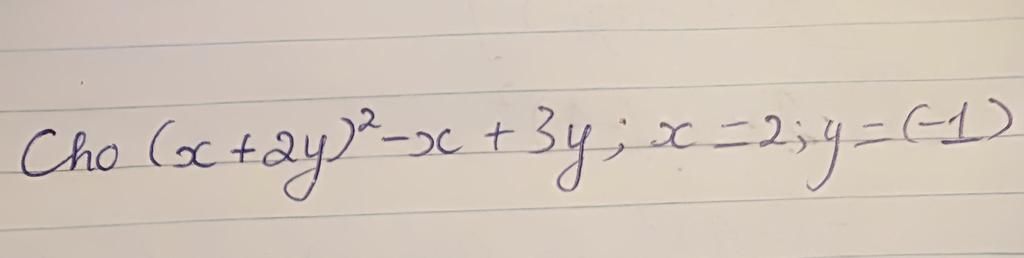 Cho (x+2y)²-x + 3y; x = 2; y = (-1)